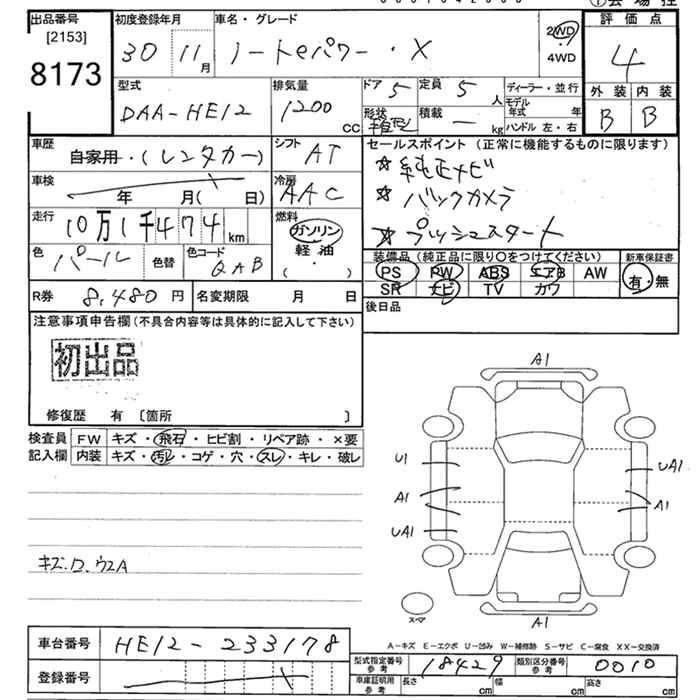 出品番号 初度登録年月 車名・グレード 評価点
[2153] 8173
30 11月 ノートeパワー・X 2WD 4WD 4
型式 排気量 ドア 5 定員 5人 ディーラー・並行 外装 内装
DAA-HE12 1200cc 形状 積載 ー kg モデル年式 年 ハンドル 左・右 B B
車歴 自家用・(レンタカー) シフト AT セールスポイント (正常に機能するものに限ります)
車検 年 月( 日) 冷房 AAC ☆ 純正ナビ
☆ バックカメラ
走行 10万1千474km 燃料 ガソリン 軽油 ( ・ ) ☆ プッシュスタート
色 パール 色替 色コード QAB 装備品 (純正品に限り〇をつけてください) 新車保証書
PS PW ABS エアB AW 有・無
R券 8,480円 名変期限 月 日 SR ナビ TV カワ
後日品
注意事項申告欄(不具合内容等は具体的に記入して下さい)
初出品
修復歴 有 〔箇所 〕
検査員 FW キズ・飛石・ヒビ割・リペア跡・×要
記入欄 内装 キズ・汚レ・コゲ・穴・スレ・キレ・破レ
A1
U1 UA1
A1 A1
UA1
キズ.ワ.ウスA
スペア A1
A-キズ E-エクボ U-凹み W-補修跡 S-サビ C-腐食 XX-交換済
車台番号 HE12-233178
型式指定番号 参考 18429 類別区分番号 参考 0010
登録番号 車庫証明用 参考 長さ cm 幅 cm 高さ cm